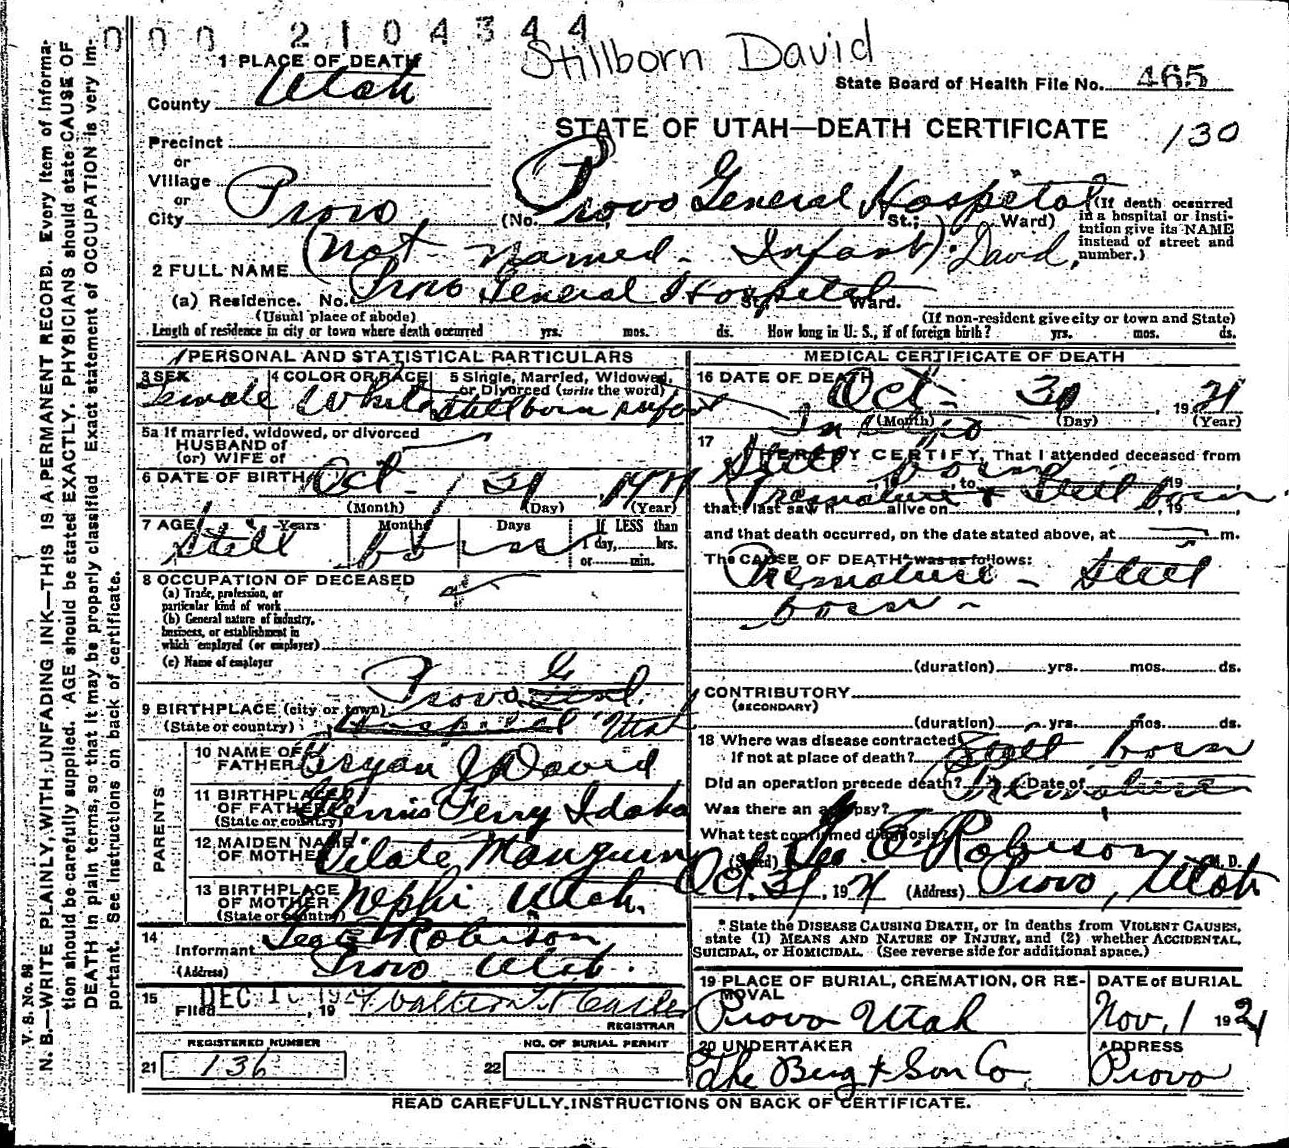 000 2104344
Stillborn David
1 PLACE OF DEATH
County Utah
State Board of Health File No. 465
STATE OF UTAH—DEATH CERTIFICATE
130
Precinct
or
Village
or
City Provo
(No. Provo General Hospital St.; Ward)
(If death occurred in a hospital or institution give its NAME instead of street and number.)
2 FULL NAME (not named - Infant). David,
(a) Residence. No. Provo General Hospital St., Ward.
(Usual place of abode)
(If non-resident give city or town and State)
Length of residence in city or town where death occurred yrs. mos. ds. How long in U. S., if of foreign birth? yrs. mos. ds.
PERSONAL AND STATISTICAL PARTICULARS
3 SEX Female
4 COLOR OR RACE White
5 Single, Married, Widowed, or Divorced (write the word) Stillborn infant
5a If married, widowed, or divorced
HUSBAND of
(or) WIFE of
6 DATE OF BIRTH Oct. 31
(Month) (Day) (Year)
7 AGE Years Months Days If LESS than
1 day, hrs.
or min.
Still born
8 OCCUPATION OF DECEASED
(a) Trade, profession, or
particular kind of work
(b) General nature of industry,
business, or establishment in
which employed (or employer)
(c) Name of employer
9 BIRTHPLACE (city or town) Provo
(State or country) Hospital Utah
PARENTS
10 NAME OF FATHER Bryan J David
11 BIRTHPLACE OF FATHER (State or country) Glenns Ferry Idaho
12 MAIDEN NAME OF MOTHER Vilate Mangum
13 BIRTHPLACE OF MOTHER (State or country) Nephi Utah.
14
Informant Robison
(Address) Provo Utah.
15 Filed DEC 10 192 , 19
REGISTRAR
REGISTERED NUMBER
21 136
NO. OF BURIAL PERMIT
22
MEDICAL CERTIFICATE OF DEATH
16 DATE OF DEATH Oct- 31, 19
(Month) (Day) (Year)
17
I HEREBY CERTIFY, That I attended deceased from
Still born
19 , to , 19
Premature & Still born
that I last saw h alive on , 19 ,
and that death occurred, on the date stated above, at m.
The CAUSE OF DEATH* was as follows:
Premature - Still
born -
(duration) yrs. mos. ds.
CONTRIBUTORY
(SECONDARY)
(duration) yrs. mos. ds.
18 Where was disease contracted
If not at place of death? Still born
Did an operation precede death? Date of Premature
Was there an autopsy?
What test confirmed diagnosis?
(Signed) Robison M. D.
Oct. 31, 192 (Address) Provo, Utah
* State the DISEASE CAUSING DEATH, or in deaths from VIOLENT CAUSES,
state (1) MEANS AND NATURE OF INJURY, and (2) whether ACCIDENTAL,
SUICIDAL, or HOMICIDAL. (See reverse side for additional space.)
19 PLACE OF BURIAL, CREMATION, OR REMOVAL
Provo Utah
DATE of BURIAL
Nov. 1 192
20 UNDERTAKER
The Berg & Son Co.
ADDRESS
Provo
READ CAREFULLY INSTRUCTIONS ON BACK OF CERTIFICATE.
V. S. No. 98
N. B.—WRITE PLAINLY, WITH UNFADING INK—THIS IS A PERMANENT RECORD. Every item of information should be carefully supplied. AGE should be stated EXACTLY. PHYSICIANS should state CAUSE OF DEATH in plain terms, so that it may be properly classified. Exact statement of OCCUPATION is very important. See instructions on back of certificate.